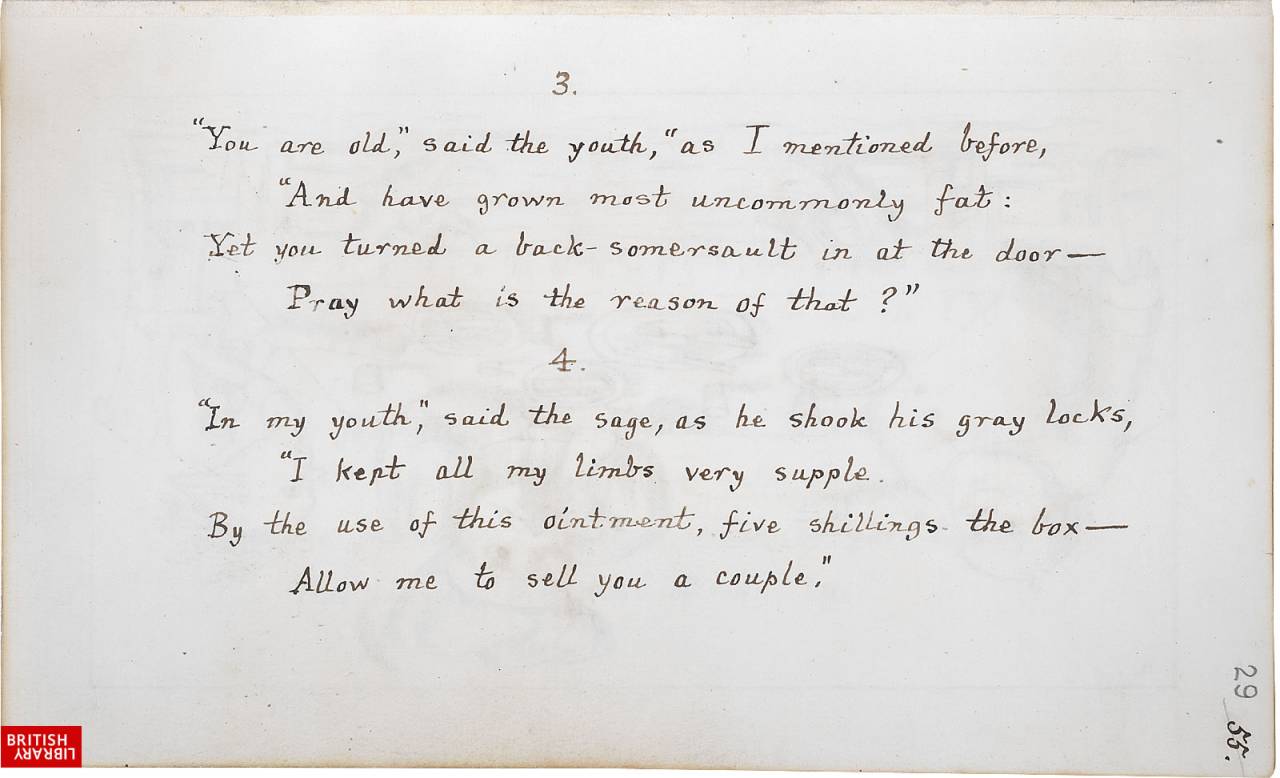 3.
"You are old," said the youth, "as I mentioned before,
"And have grown most uncommonly fat:
Yet you turned a back-somersault in at the door—
Pray what is the reason of that?"
4.
"In my youth," said the sage, as he shook his gray locks,
"I kept all my limbs very supple.
By the use of this ointment, five shillings the box—
Allow me to sell you a couple."
29
55.
BRITISH
LIBRARY